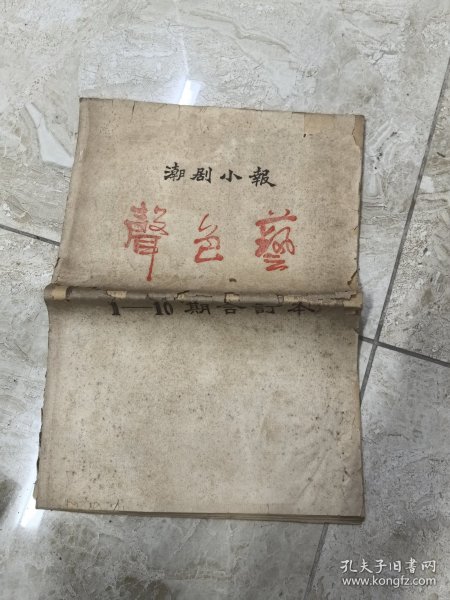 潮剧小報
聲色藝
1—10期合訂本
孔夫子旧书网
www.kongfz.com